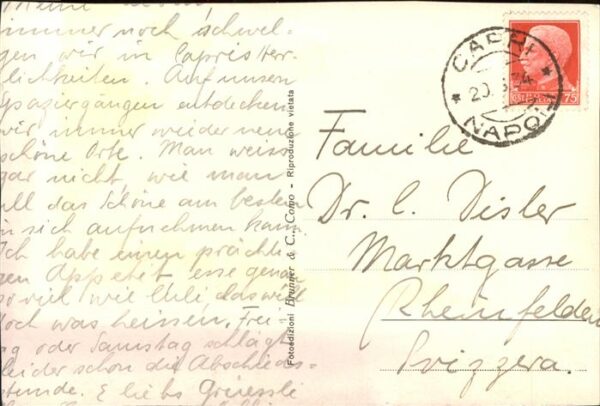 immer noch schwel-
gen wir in Capris Herr-
lichkeiten. Auf unsern
Spaziergängen entdecken
wir immer wieder neue
schöne Orte. Man weiss
gar nicht, wie man
all das Schöne am besten
in sich aufnehmen kann.
Ich habe einen prächti-
gen Appetet, esse genau
so viel wie Ueli, das will
doch was heissen. Frei-
tag oder Samstag schlägt
leider schon die Abschieds-
stunde. E liebs Grüessli
Fotoedizioni Brunner & C., Como - Riproduzione vietata
CAPRI
20. 34
NAPOLI
75
Familie
Dr. C. Disler
Marktgasse
Rheinfelden
Svizzera.